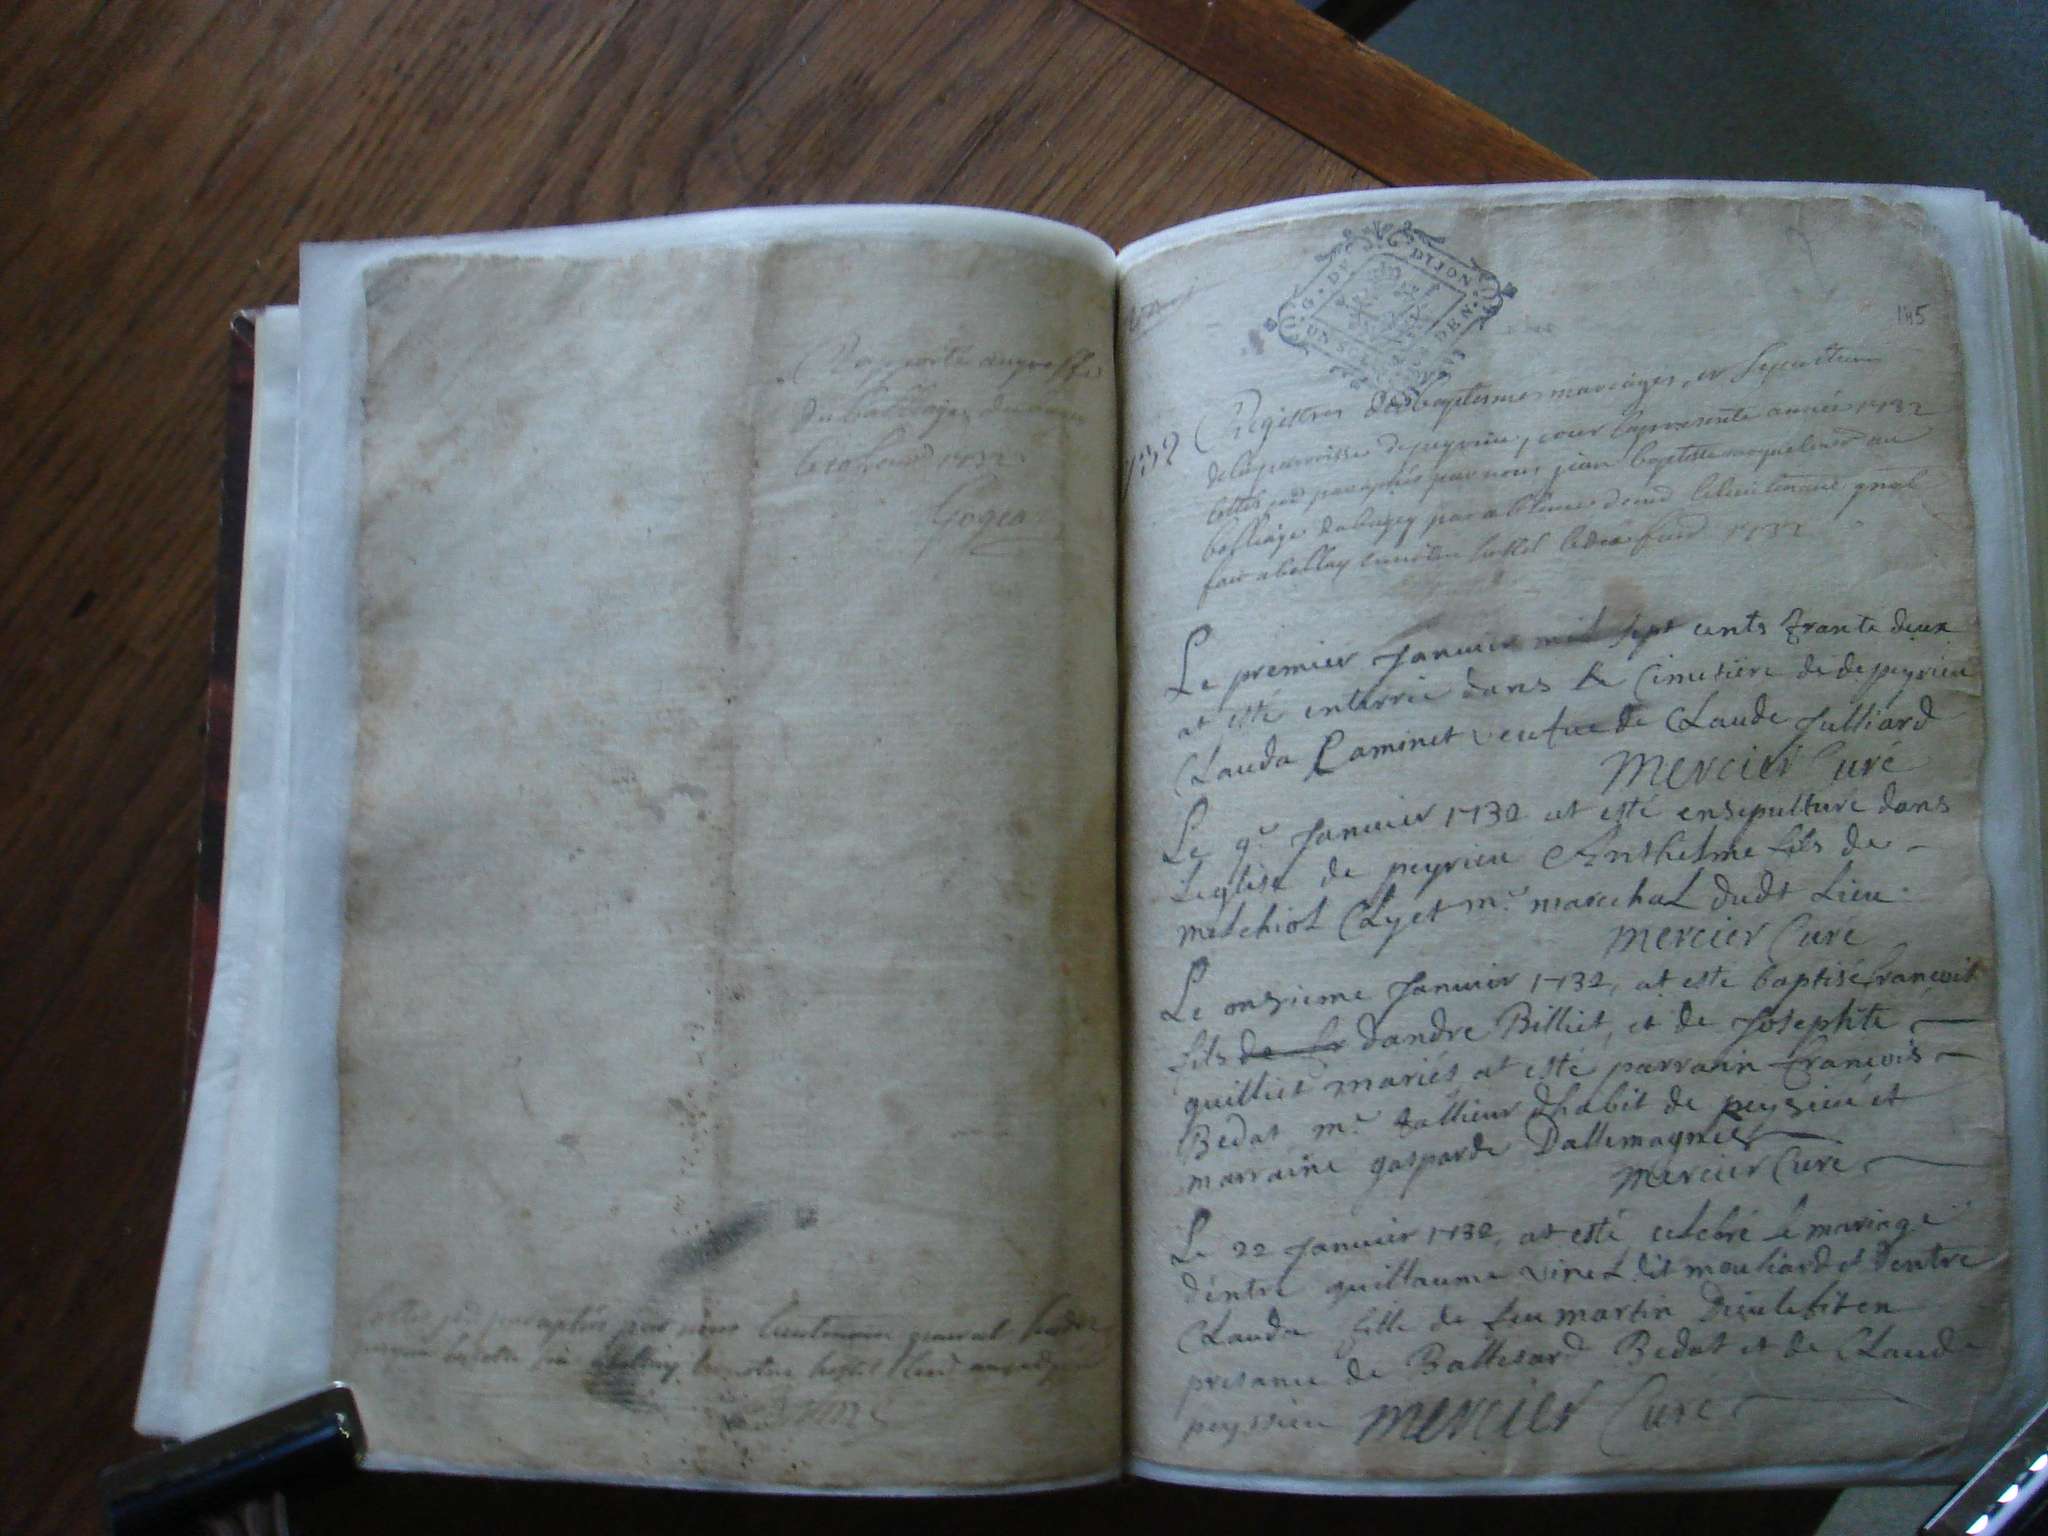 Rapporté au greffe
du balliage
1732
Gogea
Cottés et paraphés par nous lieutenant general
145
G. DE DIJON
UN SOL DEN
1732
Registres des baptesmes mariages, et sepultures
de la parroisse de peyrieu, pour la presente année 1732
cottés et paraphés par nous jean baptiste au
balliage du bugey par absence de le lieutenant gnal
fait a bellay en notre hostel 1732
Le premier Januier mil sept cents trante deux
at esté enterrée dans le Cimetiere de de peyrieu
Clauda Caminet veufue de Claude Julliard
Mercier Curé
Le 9e Januier 1732 at esté ensepulturé dans
Leglise de peyrieu Anthelme fils de
melchiol Clyet me marechal dudt Lieu.
mercier Curé
Le onzieme Januier 1732, at esté baptisé francois
fils de Sr dandre Billiet, et de Josephte
guilliet mariés at esté parrain francois
Bedat me tallieur dhabit de peyrieu et
marraine gasparde Dallemagne
mercier Curé
Le 22 Januier 1732, at esté celebré le mariage
déntre guillaume vinet dit mouliard et dentre
Clauda fille de feu martin en
presance de Baltesard Bedat et de Claude
peyssieu mercier Curé